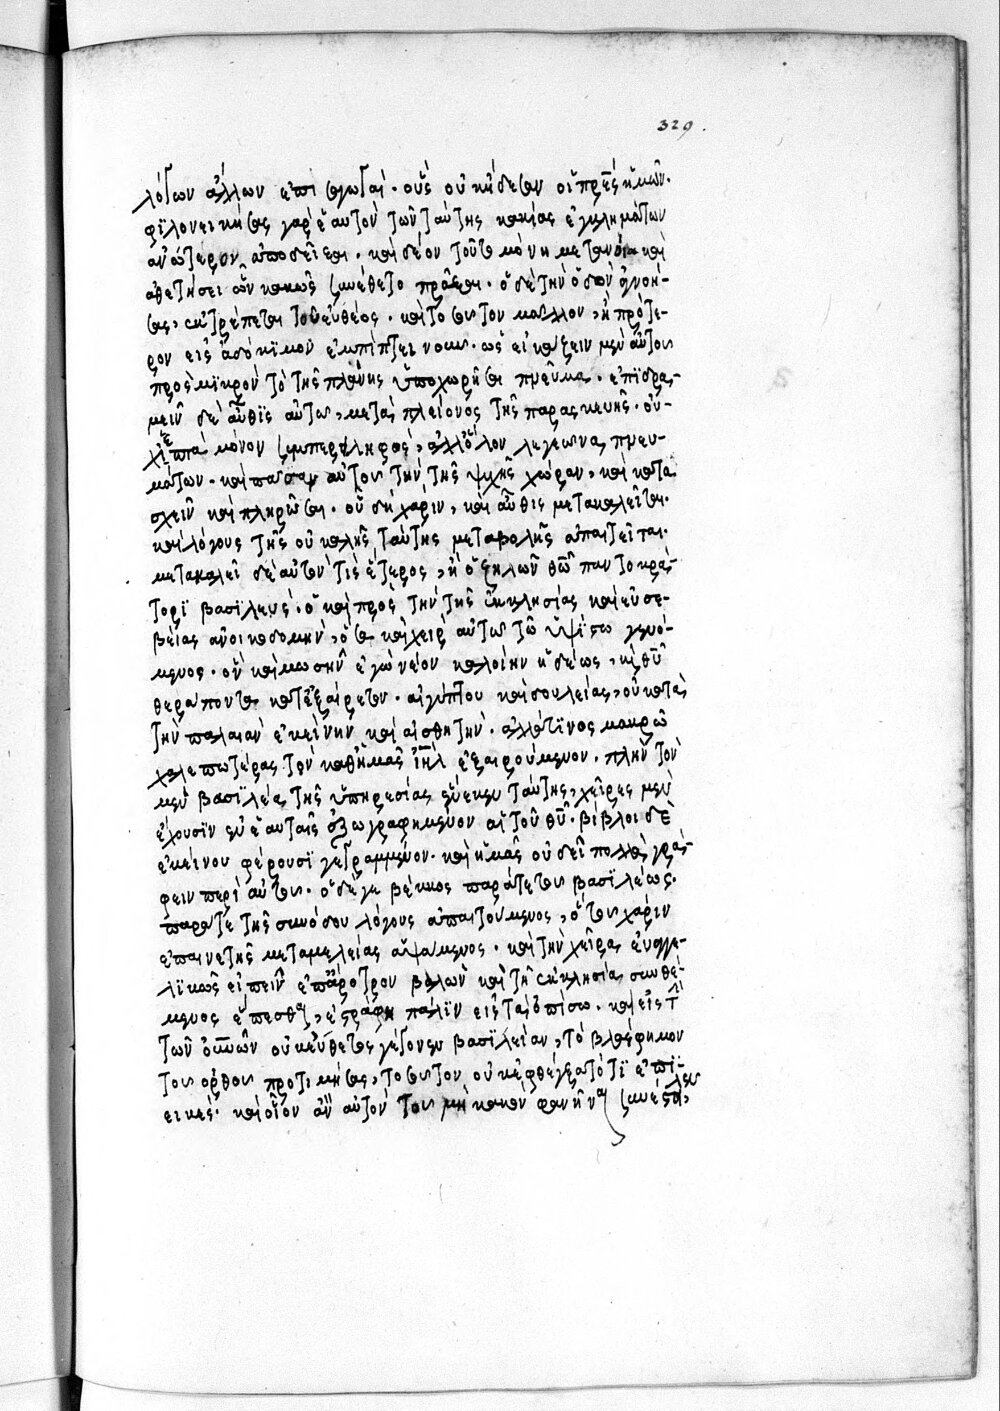 329.
λόγων ἄλλων ἐπὶ· οὓς οὐκ ᾔδεσαν οἱ πρες ἡμῶν·
φιλονεικήσας γὰρ ἑαυτὸν τῶν ταύτης κακίας ἐγκλημάτων
ἀνώτερον ἀποδεῖξαι· καὶ δέον τοῦτο μόνη μετανοία καὶ
ἀθετήσει ὧν κακῶς συνέθετο πρᾶξαι· ὁ δὲ τὴν ὁδὸν ἀγνοή-
σας, ἐκτρέπεται τοῦ εὐθέος· καὶ τοσοῦτον μᾶλλον, ἢ πρότε-
ρον εἰς ἀδόκιμον ἐμπίπτει νοῦν· ὡς εἰκάζειν μὲν αὐτοῦ
πρὸς μικρὸν τὸ τῆς πλάνης ὑποχωρῆσαι πνεῦμα· ἐπιδρα-
μεῖν δὲ αὖθις αὐτῶ, μετὰ πλείονος τῆς παρασκευῆς· οὐ-
χ μόνον συμπεριληφὸς, ἀλλ' ὅλον λεγεῶνα πνευ-
μάτων· καὶ πᾶσαν αὐτοῦ τὴν τῆς ψυχῆς χώραν, καὶ κατα
σχεῖν καὶ πληρῶσαι· οὗ δὴ χάριν, καὶ αὖθις μετακαλεῖται·
καὶ λόγους τῆς οὐ καλῆς ταύτης μεταβολῆς ἀπαιτεῖται·
μετακαλεῖ δὲ αὐτὸν τίς ἕτερος, ἢ ὁ ζηλῶν θῶ παντοκρά-
τορι βασιλεύς· ὁ καὶ πρὸς τὴν τῆς ἐκκλησίας καὶ εὐσε-
βείας ἀνοικοδομὴν, ὅσα καὶ χεὶρ αὐτῶ τῶ ὑψίστω γενό-
μενος· ὃν καὶ μωσῆν ἐγὼ νέον καλοίην ἡδέως, καὶ θυ
θεράποντα κατεξαίρετον· αἰγύπτου καὶ δουλείας, οὐ κατὰ
τὴν παλαιὰν ἐκείνην καὶ αἰσθητὴν· ἀλλά τινος μακρῶ
χαλεπωτέρας τὸν καθ' ἡμᾶς ιηλ ἐξαιρούμενον· πλὴν τὸν
μὲν βασιλέα τῆς ὑπηρεσίας ἕνεκεν ταύτης, χεῖρες μὲν
ἔχουσιν ἐν ἑαυταῖς ἐζωγραφημένον αἱ τοῦ θυ· βίβλοι δὲ
ἐκείνου φέρουσι γεγραμμένον· καὶ ἡμᾶς οὐ δεῖ πολλὰ γρά-
φειν περὶ αὐτοῦ· ὁ δέ γε βέκκος παρά τε τοῦ βασιλέως·
παρά τε τῆς συνόδου λόγους ἀπαιτούμενος, ὅτου χάριν
ἐπαινετῆς μεταμελείας ἁψάμενος· καὶ τὴν χεῖρα εὐαγγε-
λικῶς εἰπεῖν ἐπ' ἄροτρον βαλὼν καὶ τῆ ἐκκλησία συνθέ-
μενος ἕπεσθαι, ἐστράφη πάλιν εἰς τὰ ὀπίσω· καὶ εἰς τὴν
τῶν οὐνῶν οὐκ εὔθετος γέγονεν βασιλείαν, τὸ βλάσφημον
τοῦ ὀρθοῦ προτιμήσας, τοσοῦτον οὐκ ἐφθέγξατό τι ἐπι-
εικές· καὶ οἷον ἂν αὐτὸν τοῦ μὴ κακὸν φανῆναι συνέστει-
λεν